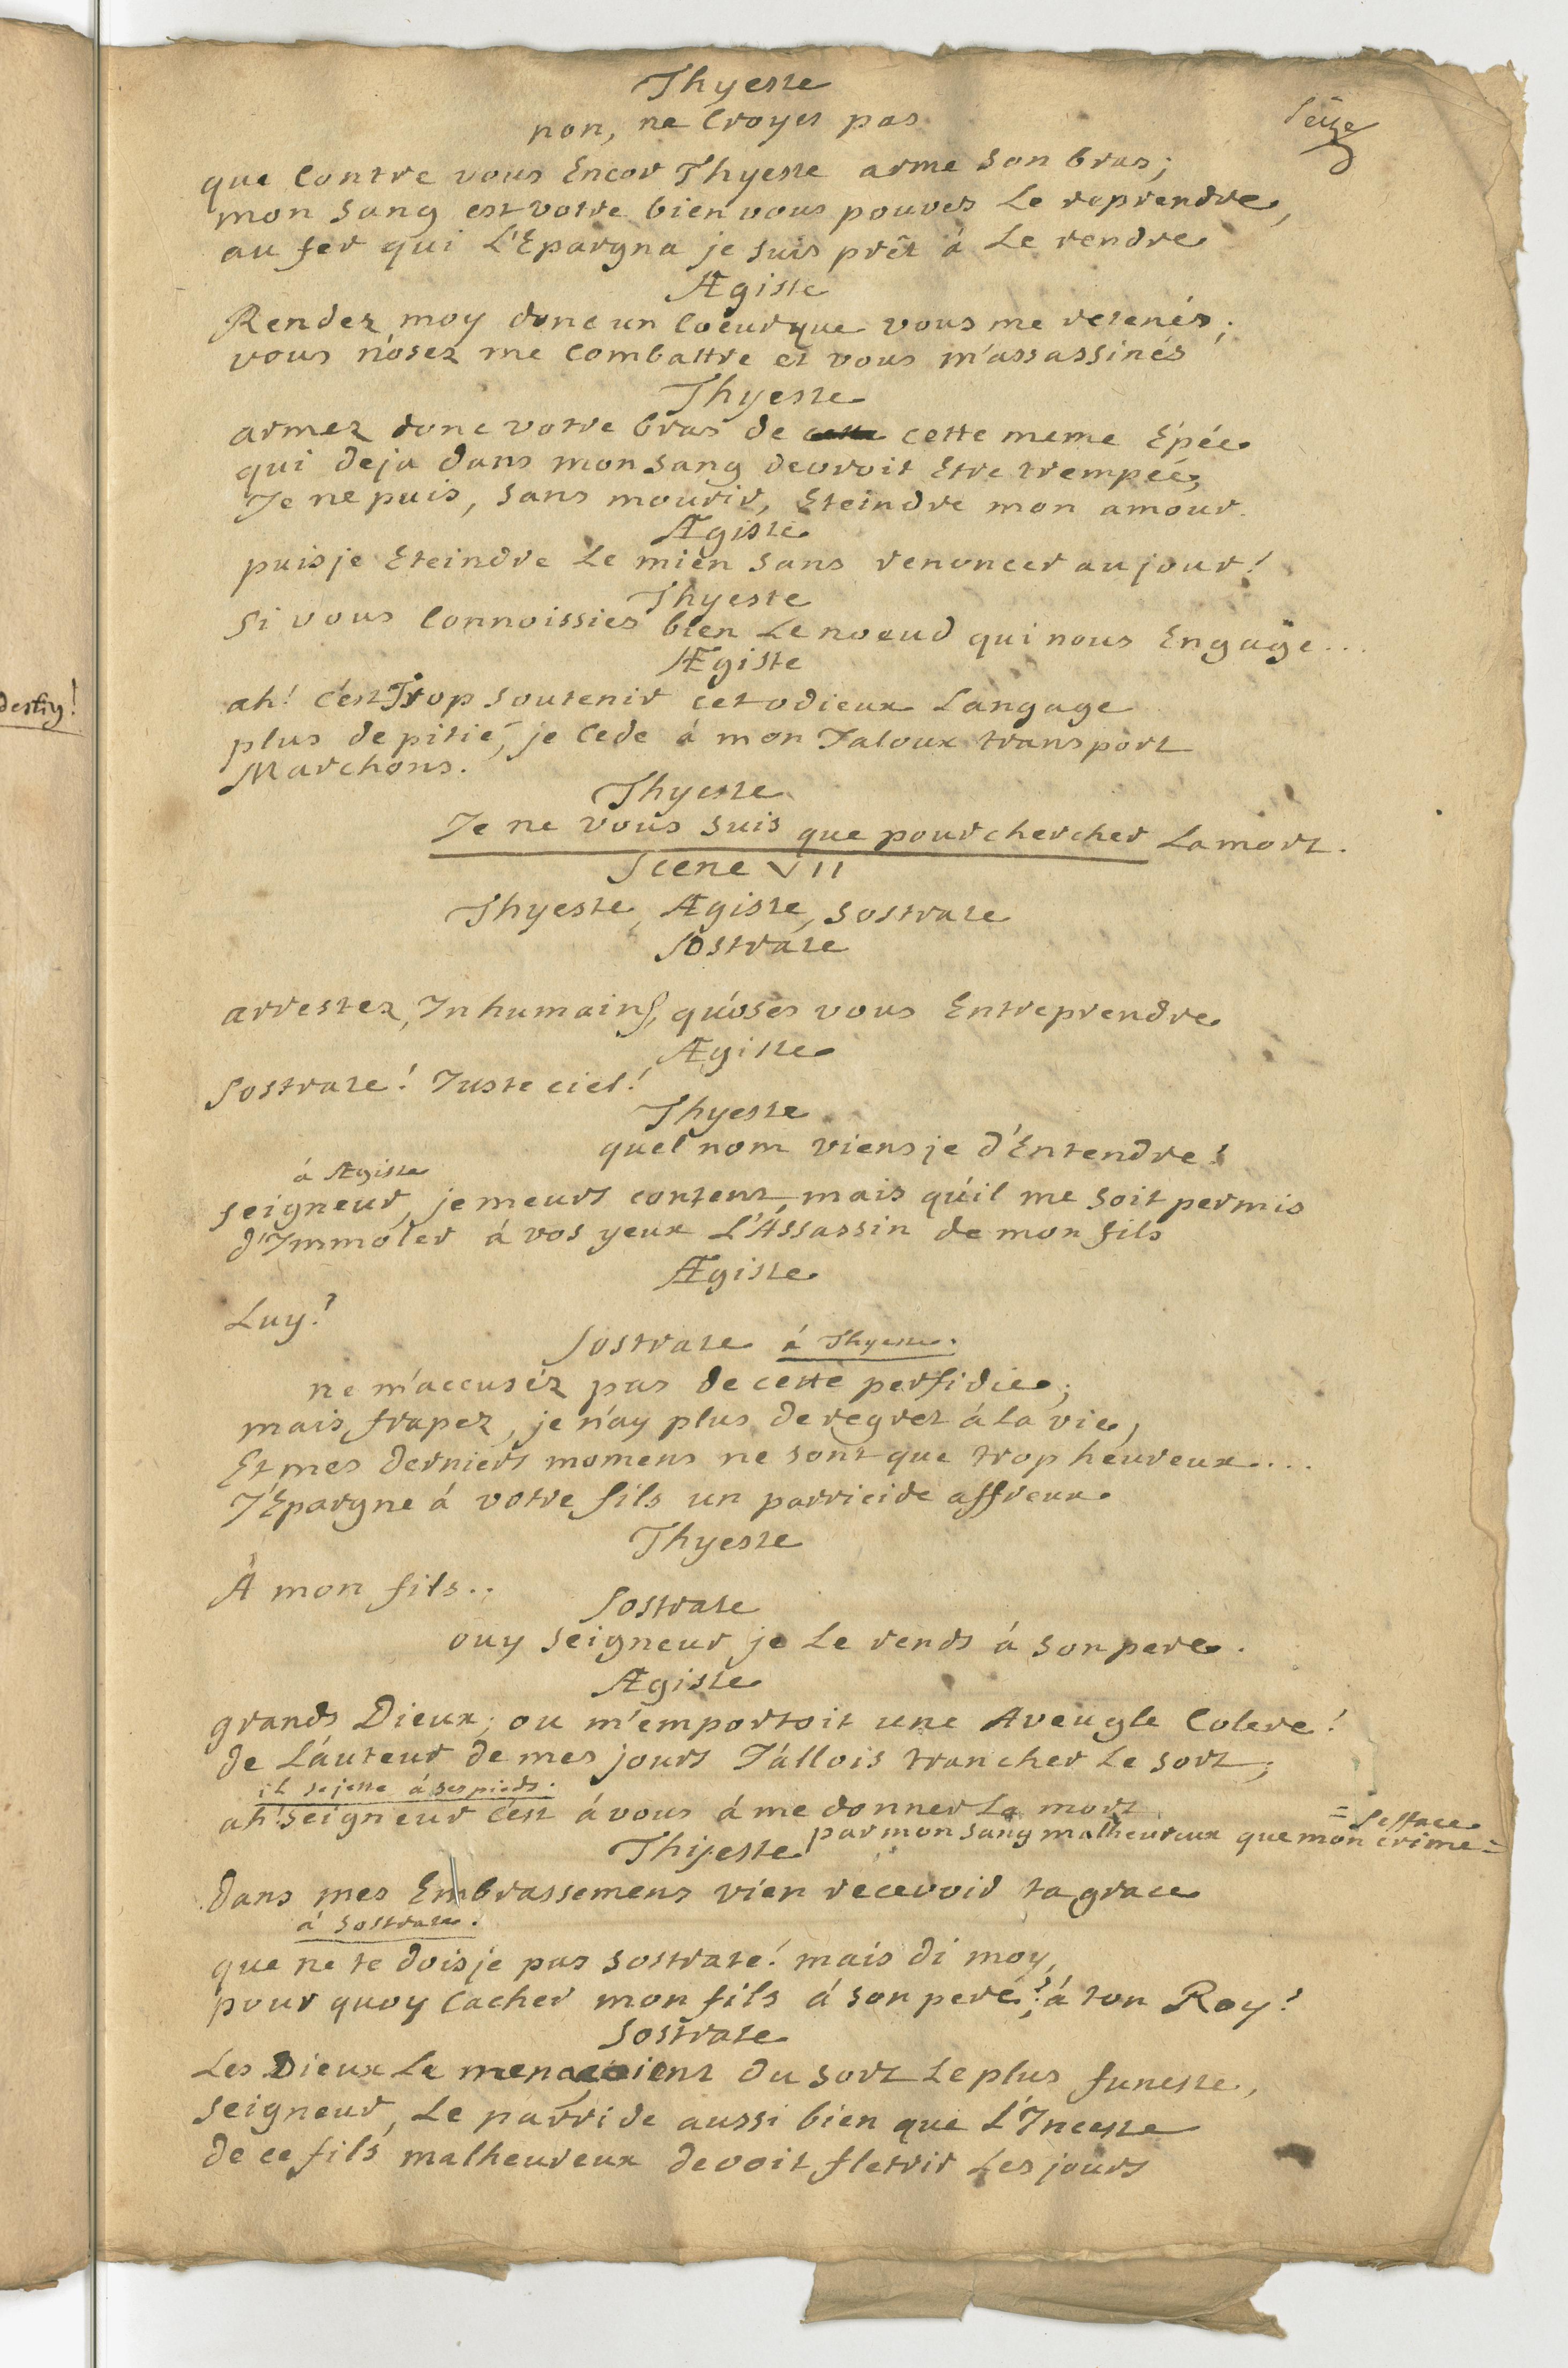 Thyeste
non, ne Croyes pas
Seize
que Contre vous Encor Thyeste arme son bras;
mon sang est votre bien vous pouves Le reprendre,
au fer qui L'Epargna je suis prêt à Le rendre
Ægiste
Rendez moy donc un Coeur que vous me retenés;
vous n'osez me Combattre et vous m'assassinés
Thyeste
armez donc votre bras de cette cette meme Epée
qui deja dans mon sang devroit Etre trempée,
Je ne puis, sans mourir, Eteindre mon amour.
Ægiste
puis je Eteindre Le mien sans renoncer au jour!
Thyeste
Si vous Connoissies bien Le noeud qui nous Engage...
Ægiste
destin!
ah! c'est Trop soutenir cet odieux Langage
plus de pitié, je Cede à mon Jaloux transport
Marchons.
Thyeste
Je ne vous suis que pour chercher La mort.
Scene VII
Thyeste, Ægiste, Sostrate
Sostrate
arrestez, Inhumains, qu'oses vous Entreprendre
Ægiste
Sostrate! Juste ciel!
Thyeste
quel nom viens je d'Entendre!
à Ægiste
seigneur, je meurs content, mais qu'il me soit permis
d'Immoler à vos yeux L'Assassin de mon fils
Ægiste
Luy?
Sostrate à Thyeste.
ne m'accuséz pas de cette perfidie;
mais frapez, je n'ay plus de regret à La vie,
Et mes derniers momens ne sont que trop heureux....
J'Epargne à votre fils un parricide affreux.
Thyeste
A mon fils..
Sostrate
ouy seigneur je Le rends à son pere.
Ægiste
grands Dieux; ou m'emportoit une Aveugle Colere!
de L'auteur de mes jours J'allois trancher Le sort;
il se jette à ses pieds.
ah! seigneur c'est à vous à me donner La mort
= s'efface
par mon sang malheureux que mon crime =
Thyeste
dans mes Embrassemens vien recevoir ta grace
à Sostrate.
que ne te dois je pas Sostrate! mais di moy,
pour quoy Cacher mon fils à son pere? à ton Roy?
Sostrate
Les Dieux Le menaçoient du sort Le plus funeste,
Seigneur, Le parride aussi bien que L'Inceste
de ce fils malheureux devoit fletrir Les jours